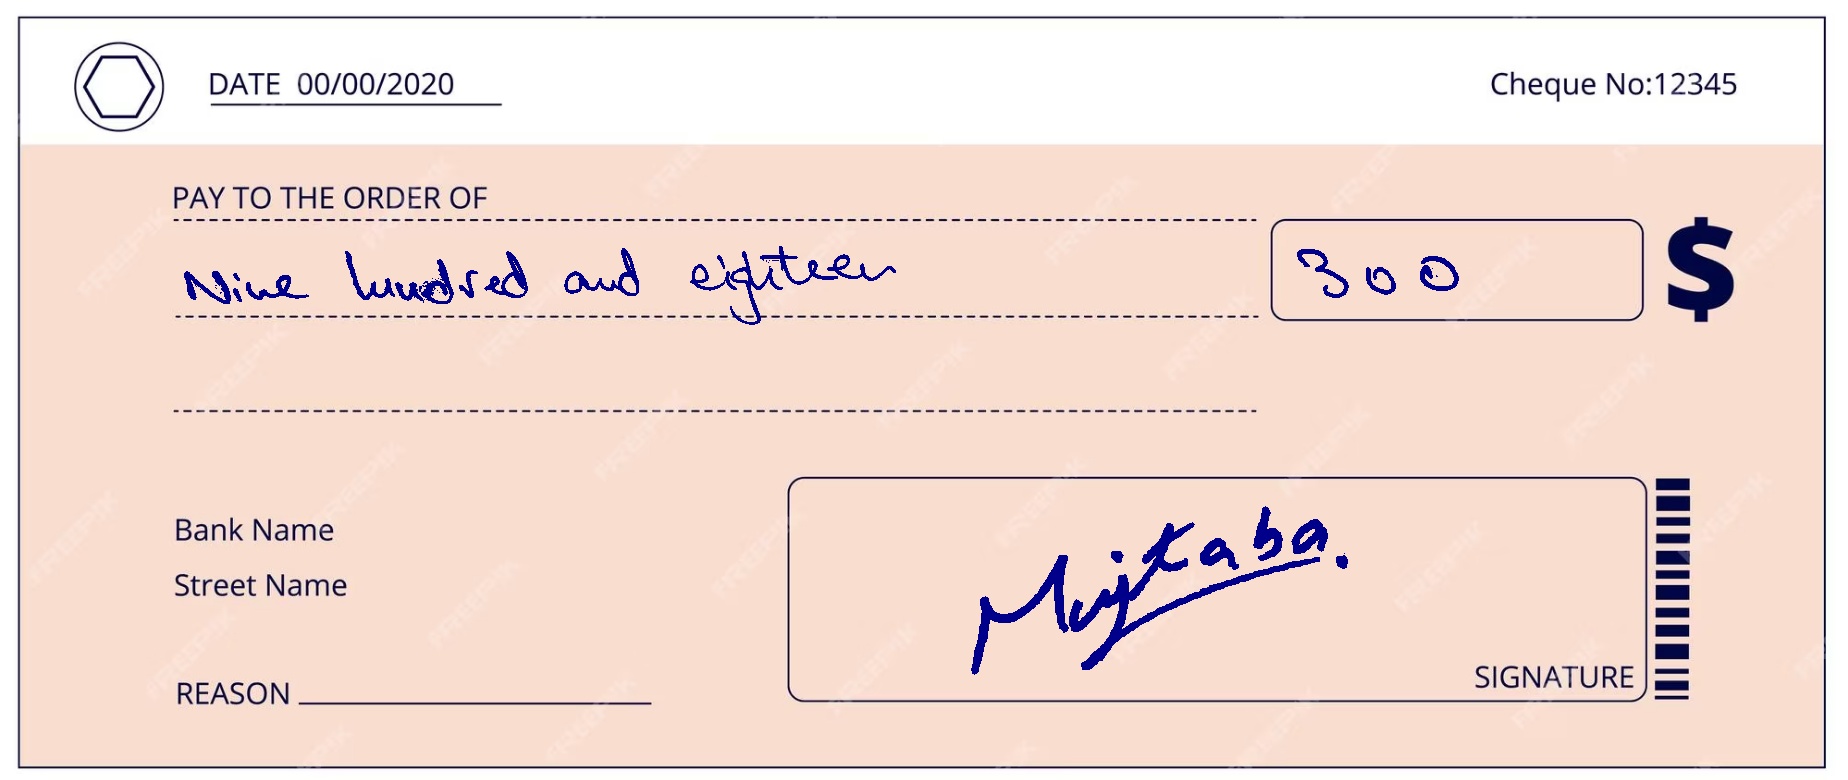 DATE 00/00/2020
Cheque No:12345
PAY TO THE ORDER OF
Nine hundred and eighteen
300
$
Bank Name
Street Name
Mujtaba.
SIGNATURE
REASON